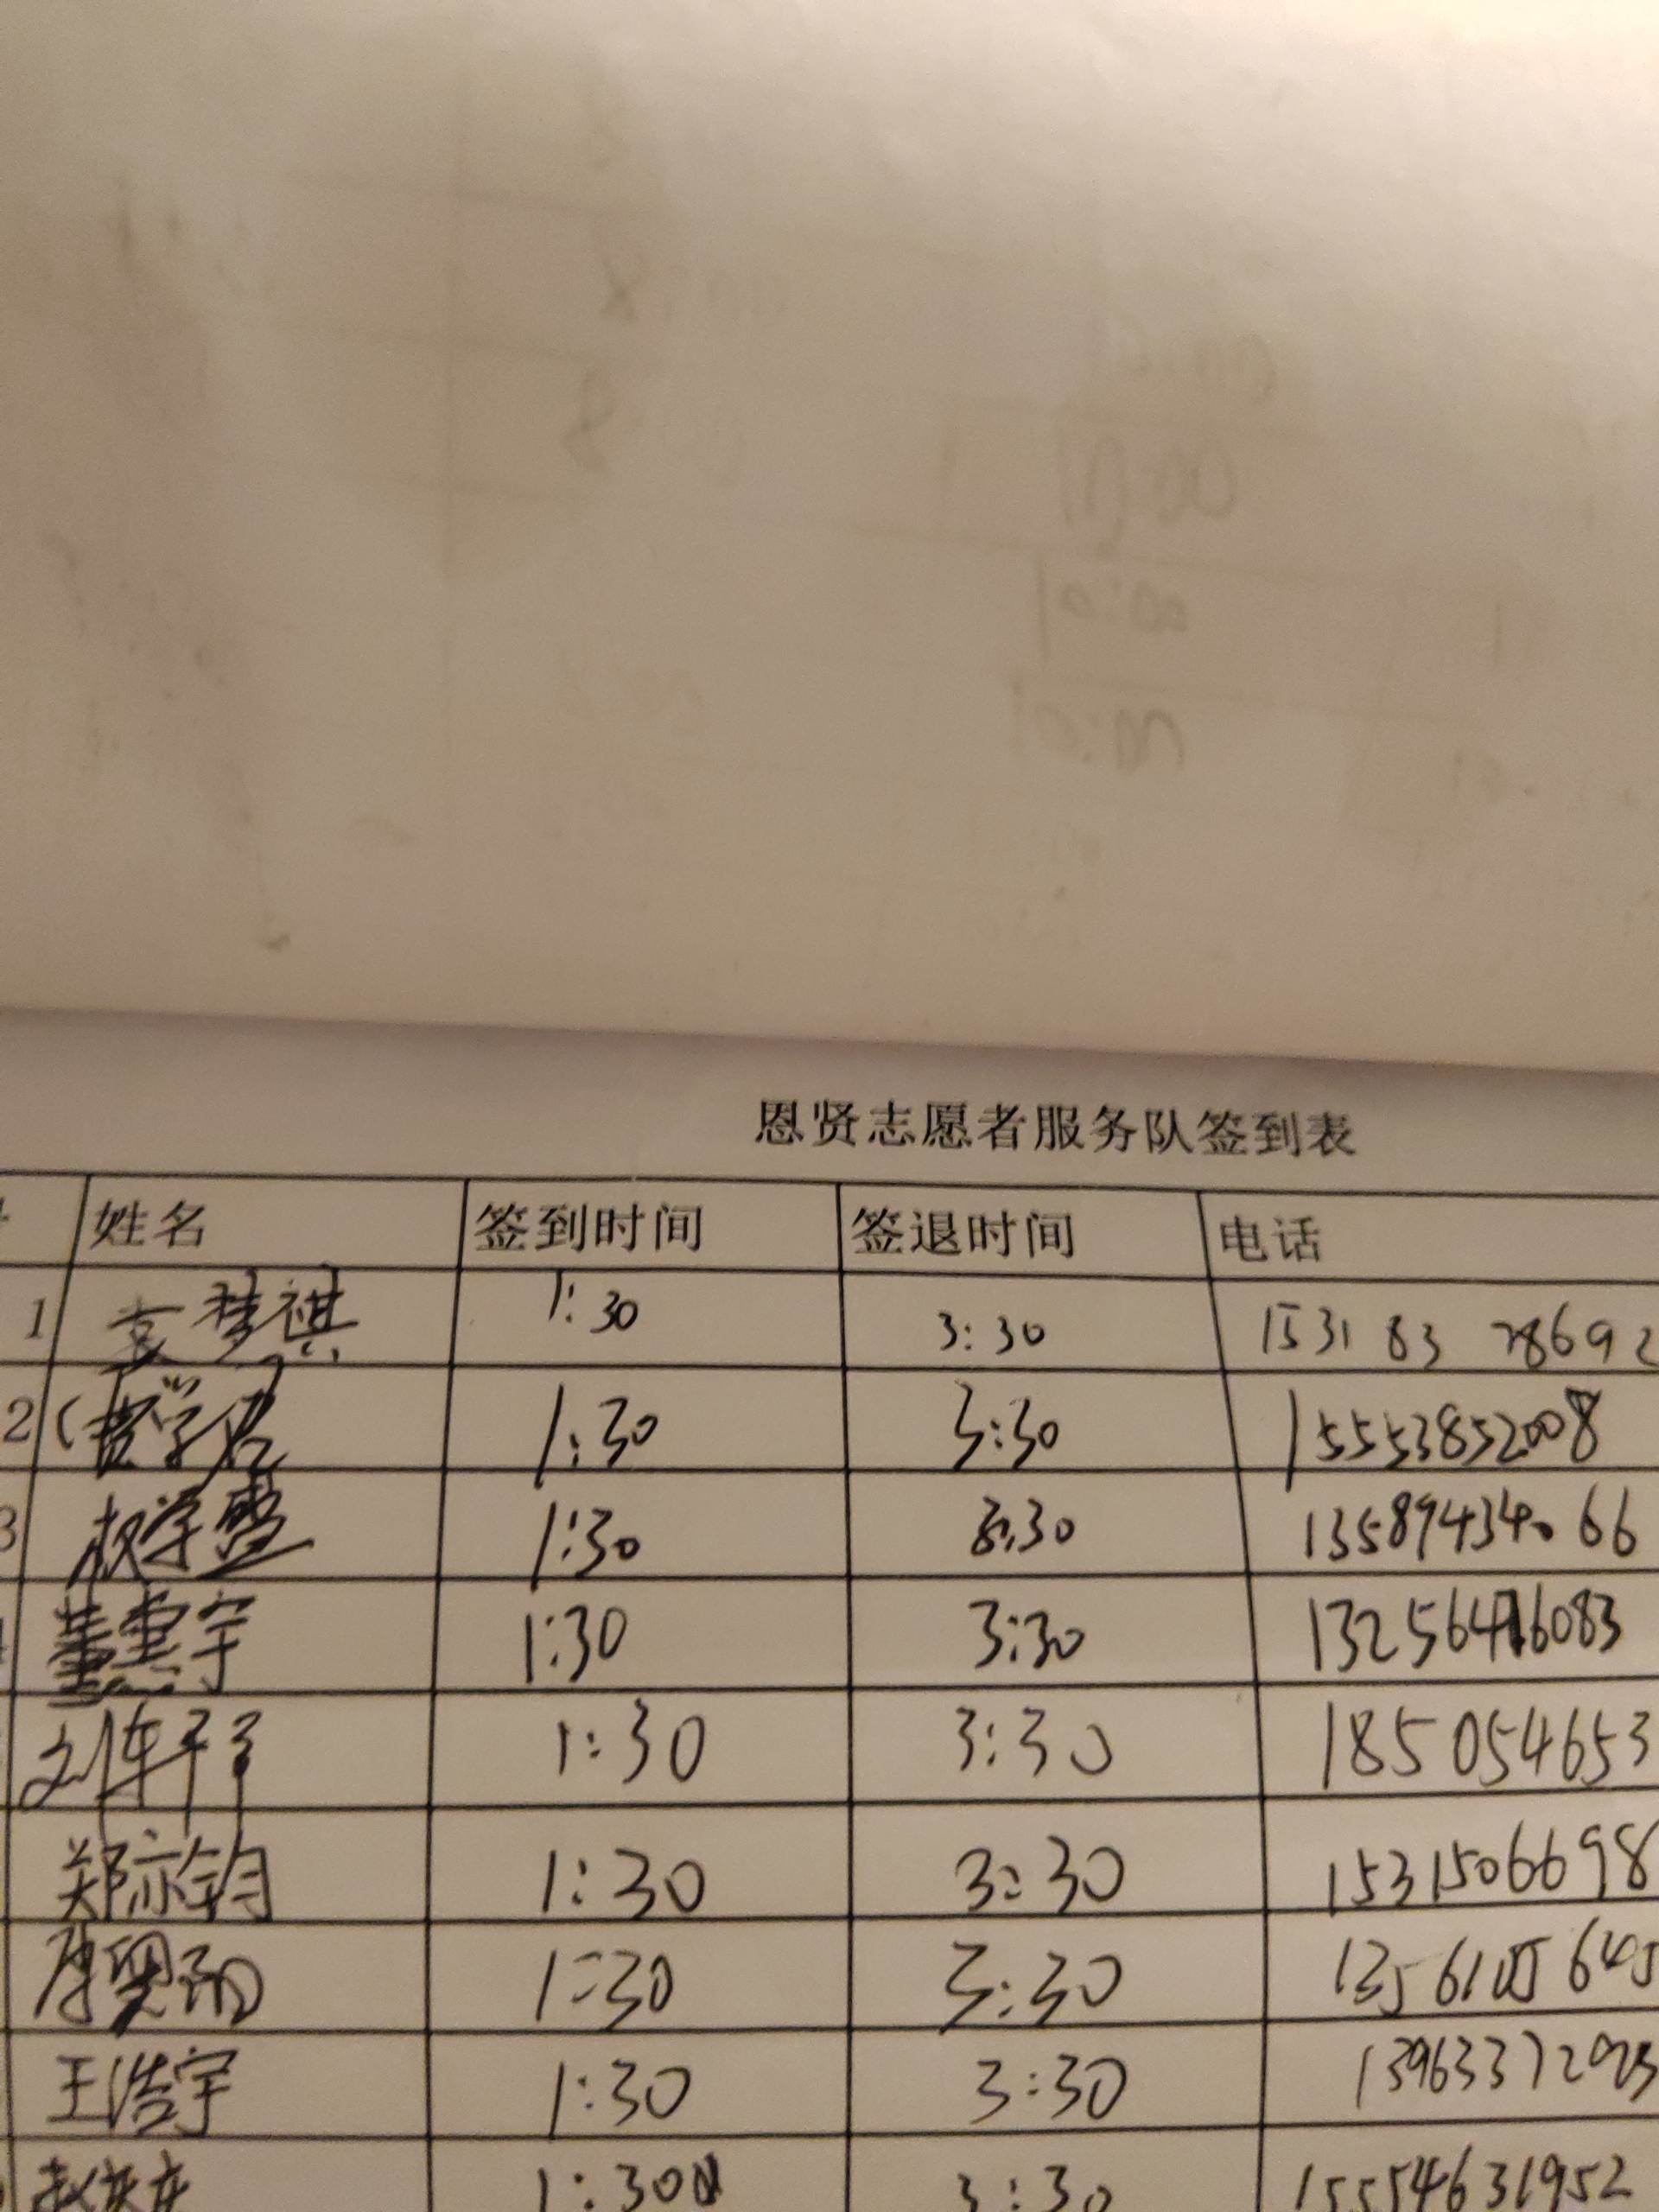 恩贤志愿者服务队签到表
姓名 签到时间 签退时间 电话
1 支梦祺 1:30 3:30 153183 78692
2 1:30 3:30 15553852008
3 1:30 3:30 66
董惠宇 1:30 3:30 083
刘 1:30 3:30 185054653
郑亦钧 1:30 3:30 15315066698
1:30 3:30 1356105645
王浩宇 1:30 3:30 1396337
赵 1:30 3:30 15554631952